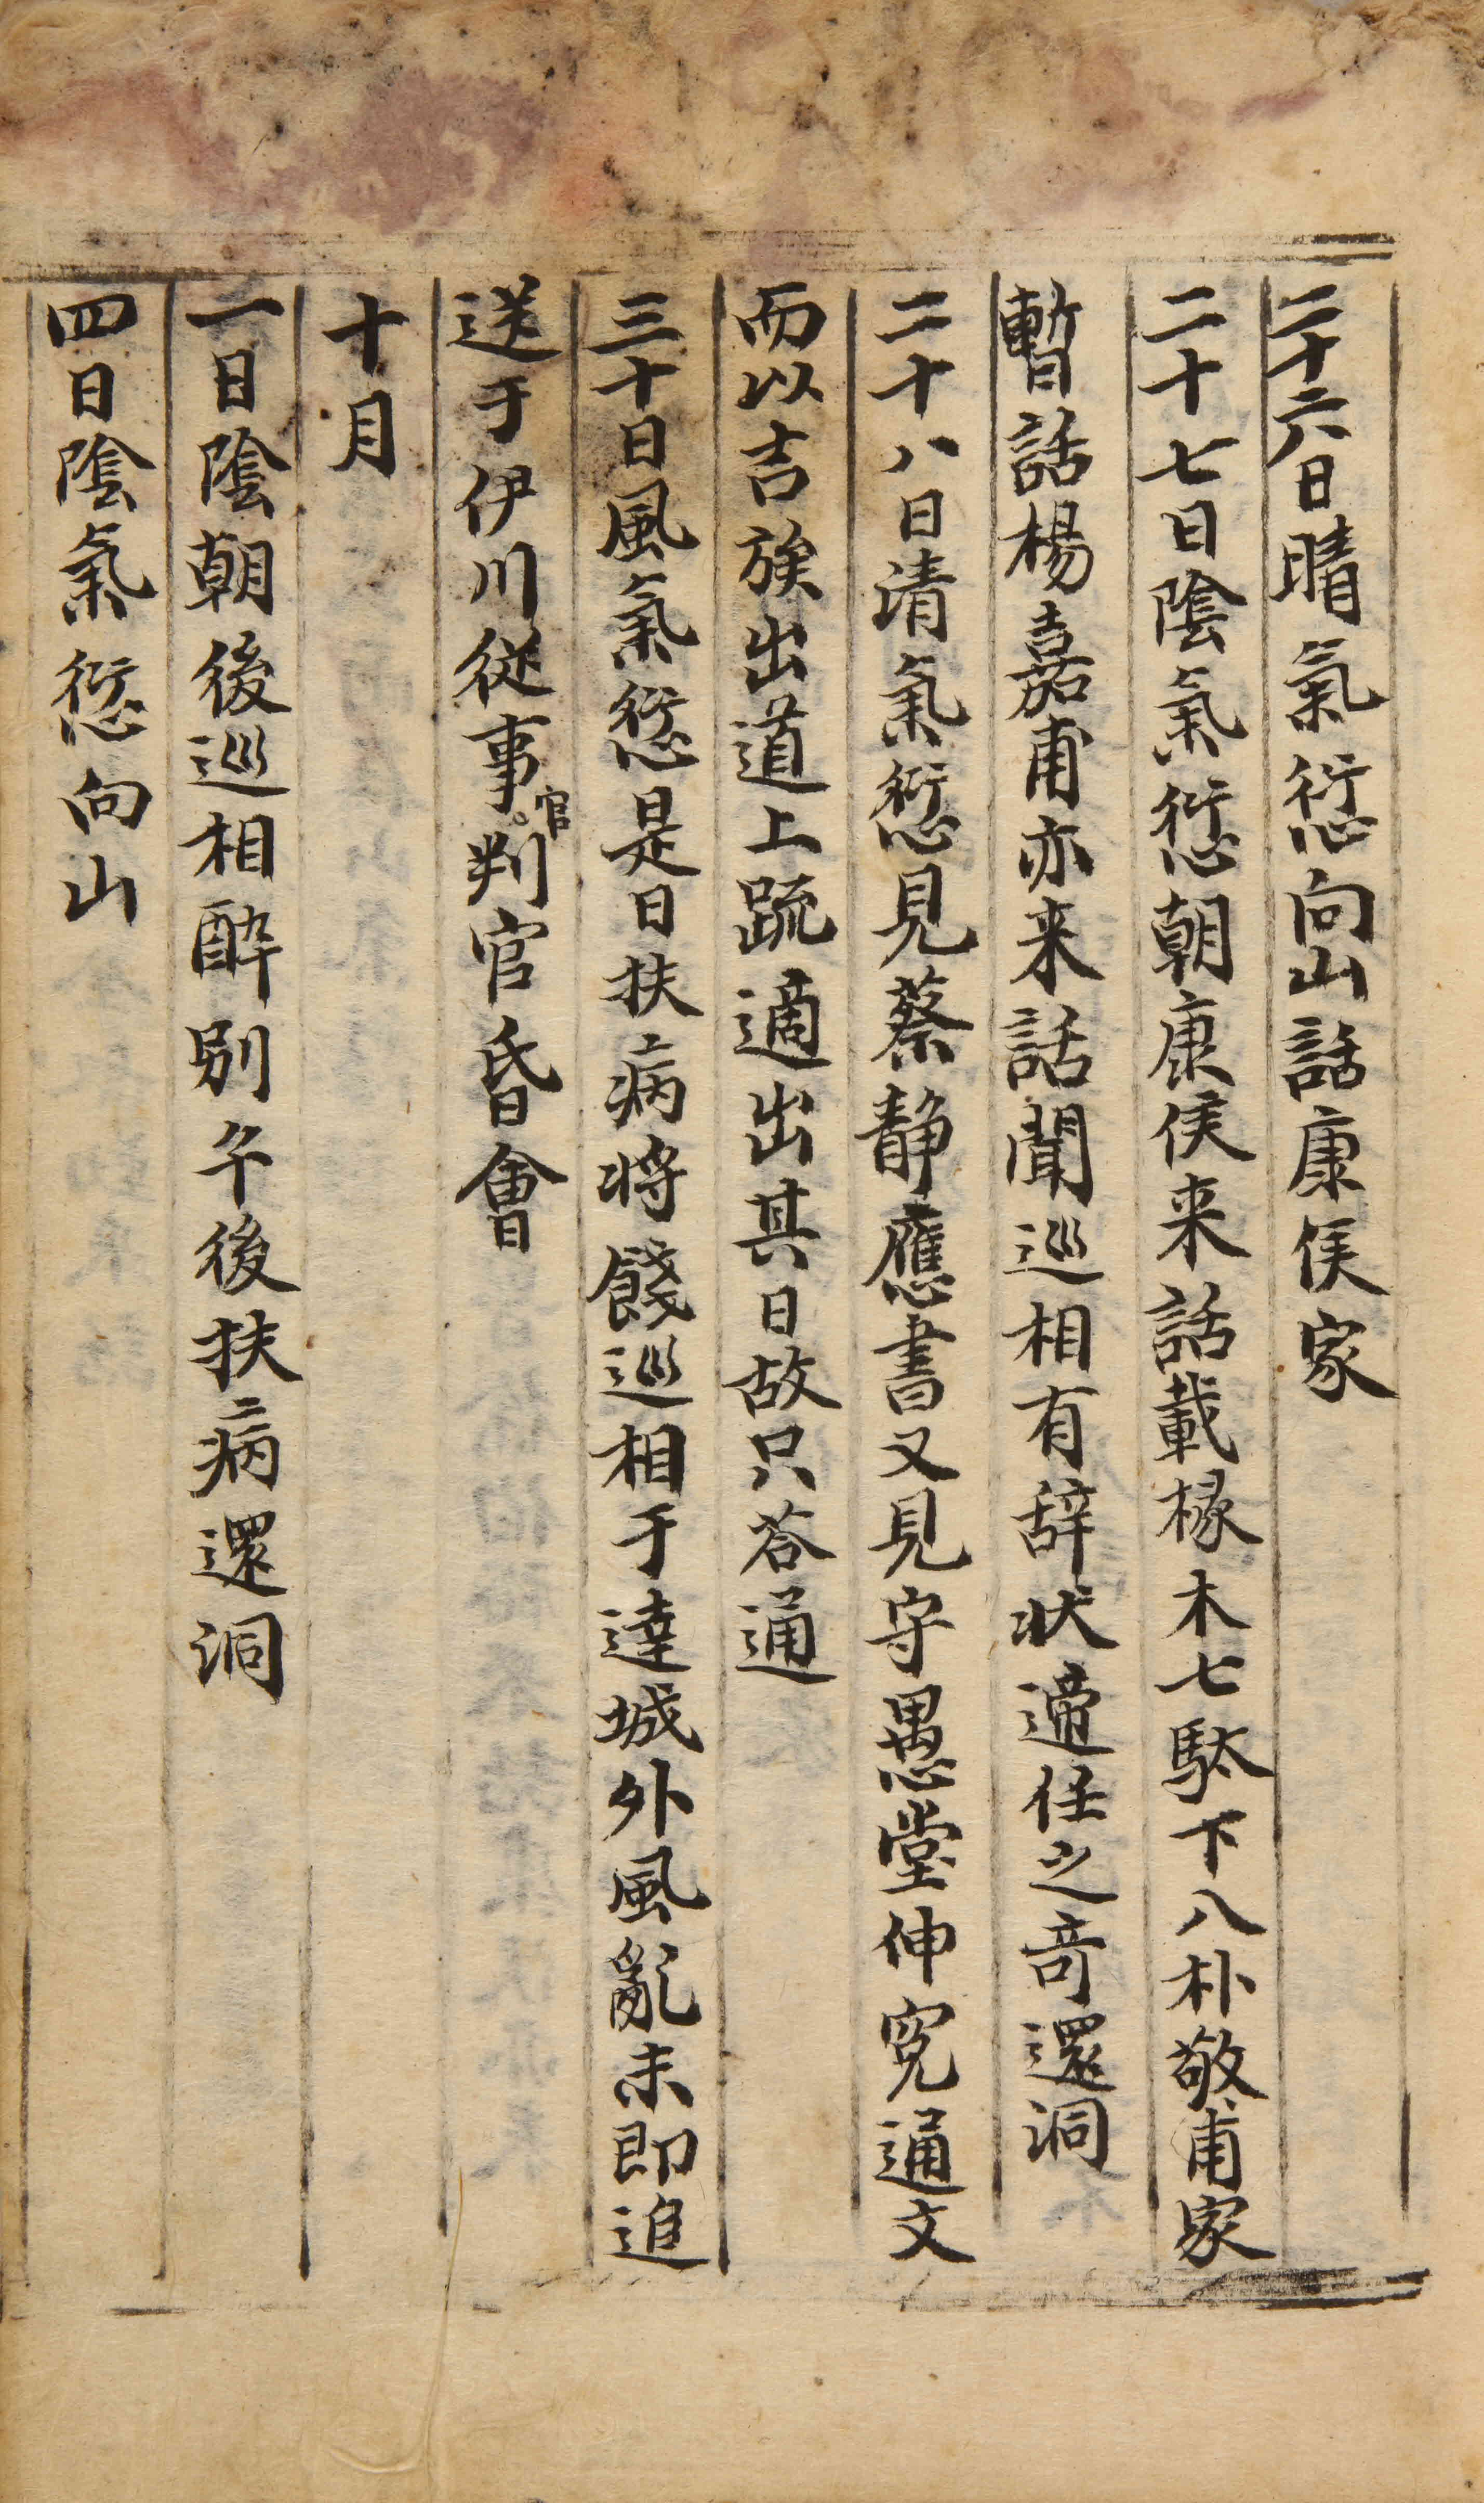 二十六日晴氣愆向山話康侯家
二十七日陰氣愆朝康侯来話載椽木七駄下八朴敬甫家
暫話楊嘉甫亦来話聞巡相有辞狀遆任之奇還洞
二十八日清氣愆見蔡静應書又見守愚堂伸寃通文
而以吉族出道上疏適出其日故只荅通
三十日風氣愆是日扶病将餞巡相于達城外風亂未即進
送于伊川従事官判官昏會
十月
一日陰朝後巡相酔别午後扶病還洞
四日陰氣愆向山